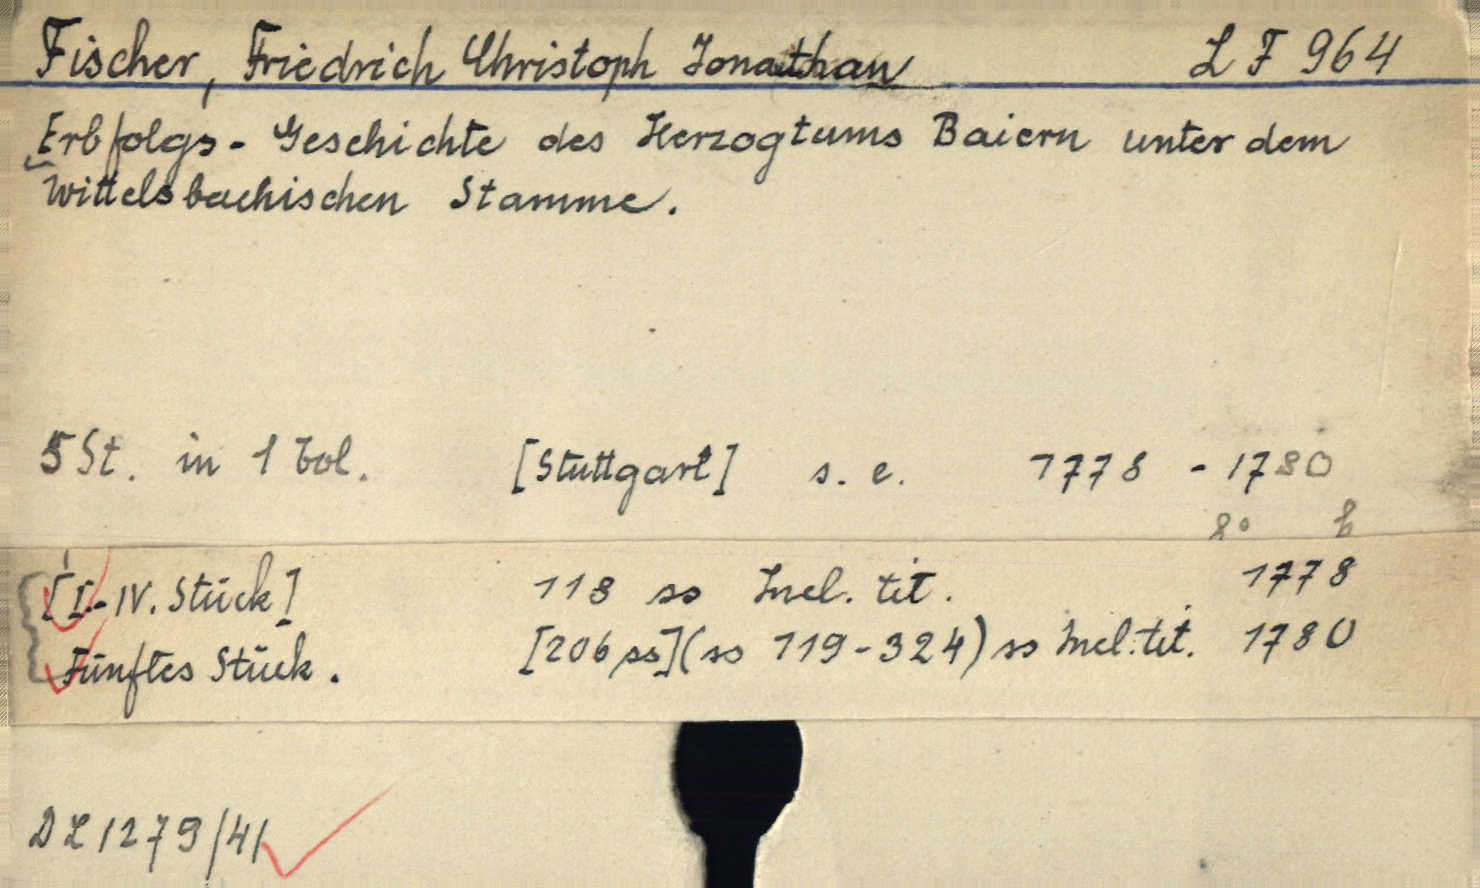 Fischer, Friedrich Christoph Jonathan L F 964
Erbfolgs-Geschichte des Herzogtums Baiern unter dem
Wittelsbachischen Stamme.
5 St. in 1 vol. [Stuttgart] s. e. 1778 - 1780
8° b
[I.-IV. Stück] 118 ss Incl. tit. 1778
Fünftes Stück. [206 ss] (ss 119-324) ss Incl. tit. 1780
DL 1279/41